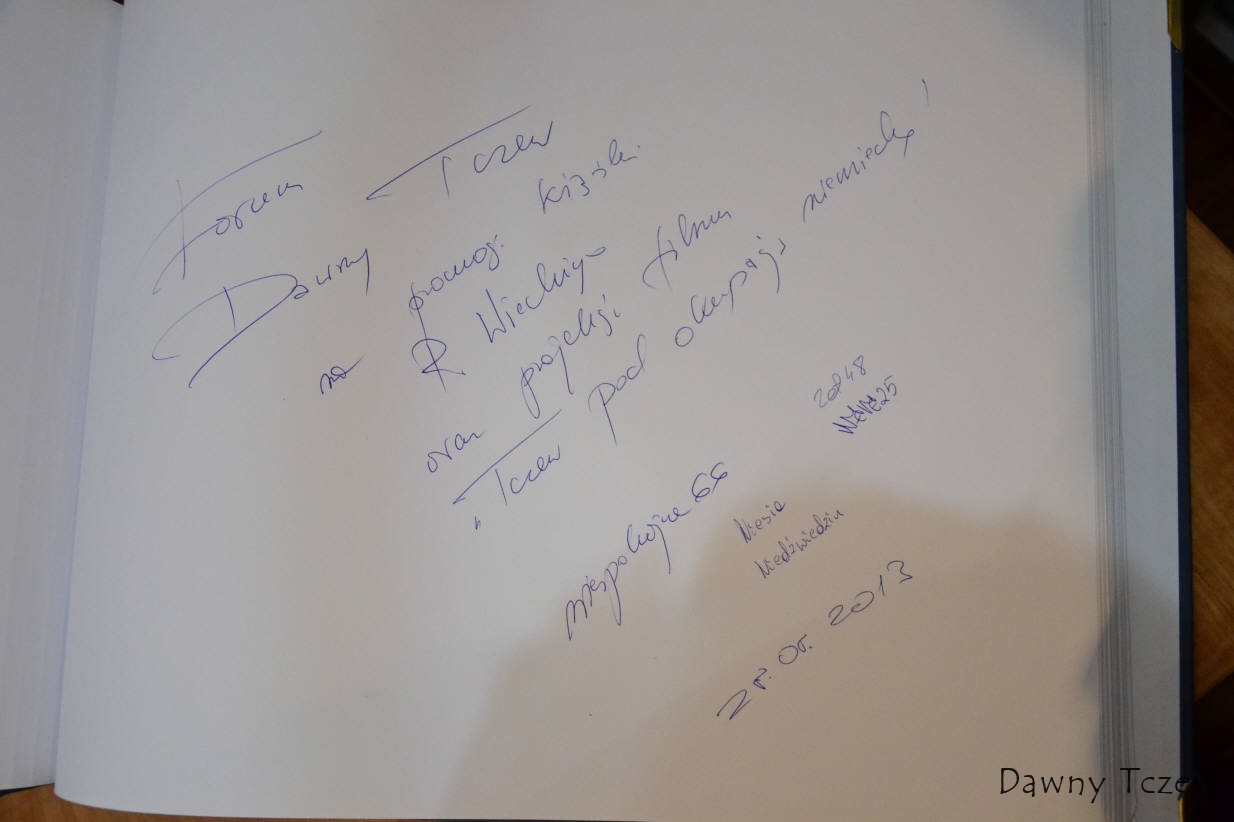 Forum
Dawny Tczew
na promocji książki
R. Wiechijo
oraz projekcji filmu
„Tczew pod okupacją niemiecką!
niespokojne66
Niesia
Niedźwiedzia
2013
Dawny Tczew